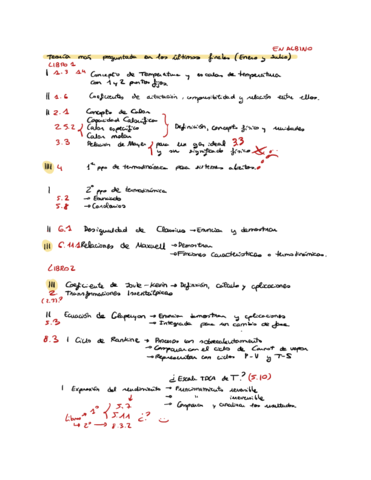 EN ALBINO
Teoría más preguntada en los últimos finales (Enero y Julio)
LIBRO 1
I 1.3 1.4 Concepto de Temperatura y escalas de temperatura
con 1 y 2 puntos fijos
II 1.6 Coeficientes de dilatación, compresibilidad y relación entre ellos.
II 2.1 Concepto de Calor
Capacidad Calorífica
2.5.2 Calor específico Definición, concepto físico y unidades
Calor molar
3.3 Relación de Mayer para un gas ideal 3.3
y su significado físico
III 4 1er ppo de termodinámica para sistemas abiertos.
I 2º ppo de termodinámica
5.2 → Enunciado
5.8 → Corolarios
II 6.1 Desigualdad de Clausius → Enuncia y demostrar
III 6.11.1 Relaciones de Maxwell → Demostrar
→ Funciones características o termodinámicas.
LIBRO 2
III Coeficiente de Joule-Kelvin → Definición, cálculo y aplicaciones
2. Transformaciones Isentálpicas
(2.7)?
II Ecuación de Clapeyron → Enuncia demostrar y aplicaciones
5.3 → Integrada para un cambio de fase.
8.3 I Ciclo de Rankine → Proceso con sobrecalentamiento
→ Comparar con el ciclo de Carnot de vapor
→ Representar con ciclos P-V y T-S
¿Escala TDCA de T? (5.10)
I Expresión del rendimiento → Funcionamiento reversible
→ " irreversible
→ Comparar y analizar los resultados
Libro 1º 5.7
5.11 ¿?
→ 2º → 8.3.2